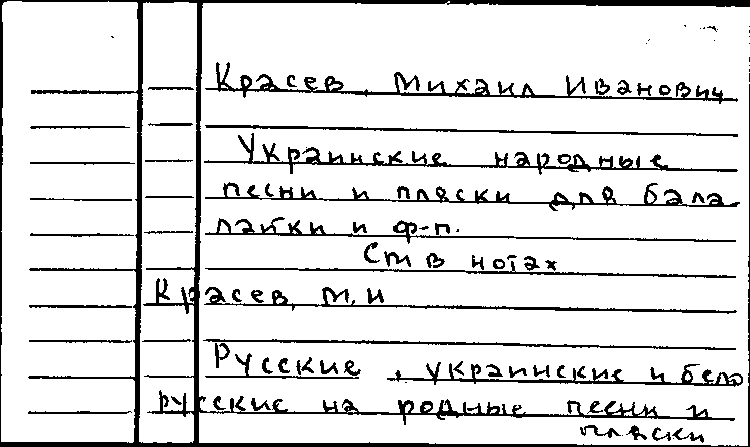 Красев, Михаил Иванович
Украинские народные
песни и пляски для бала-
лайки и ф-п.
См в нотах
Красев, М.И
Русские, украинские и бело
русские на родные песни и
пляски